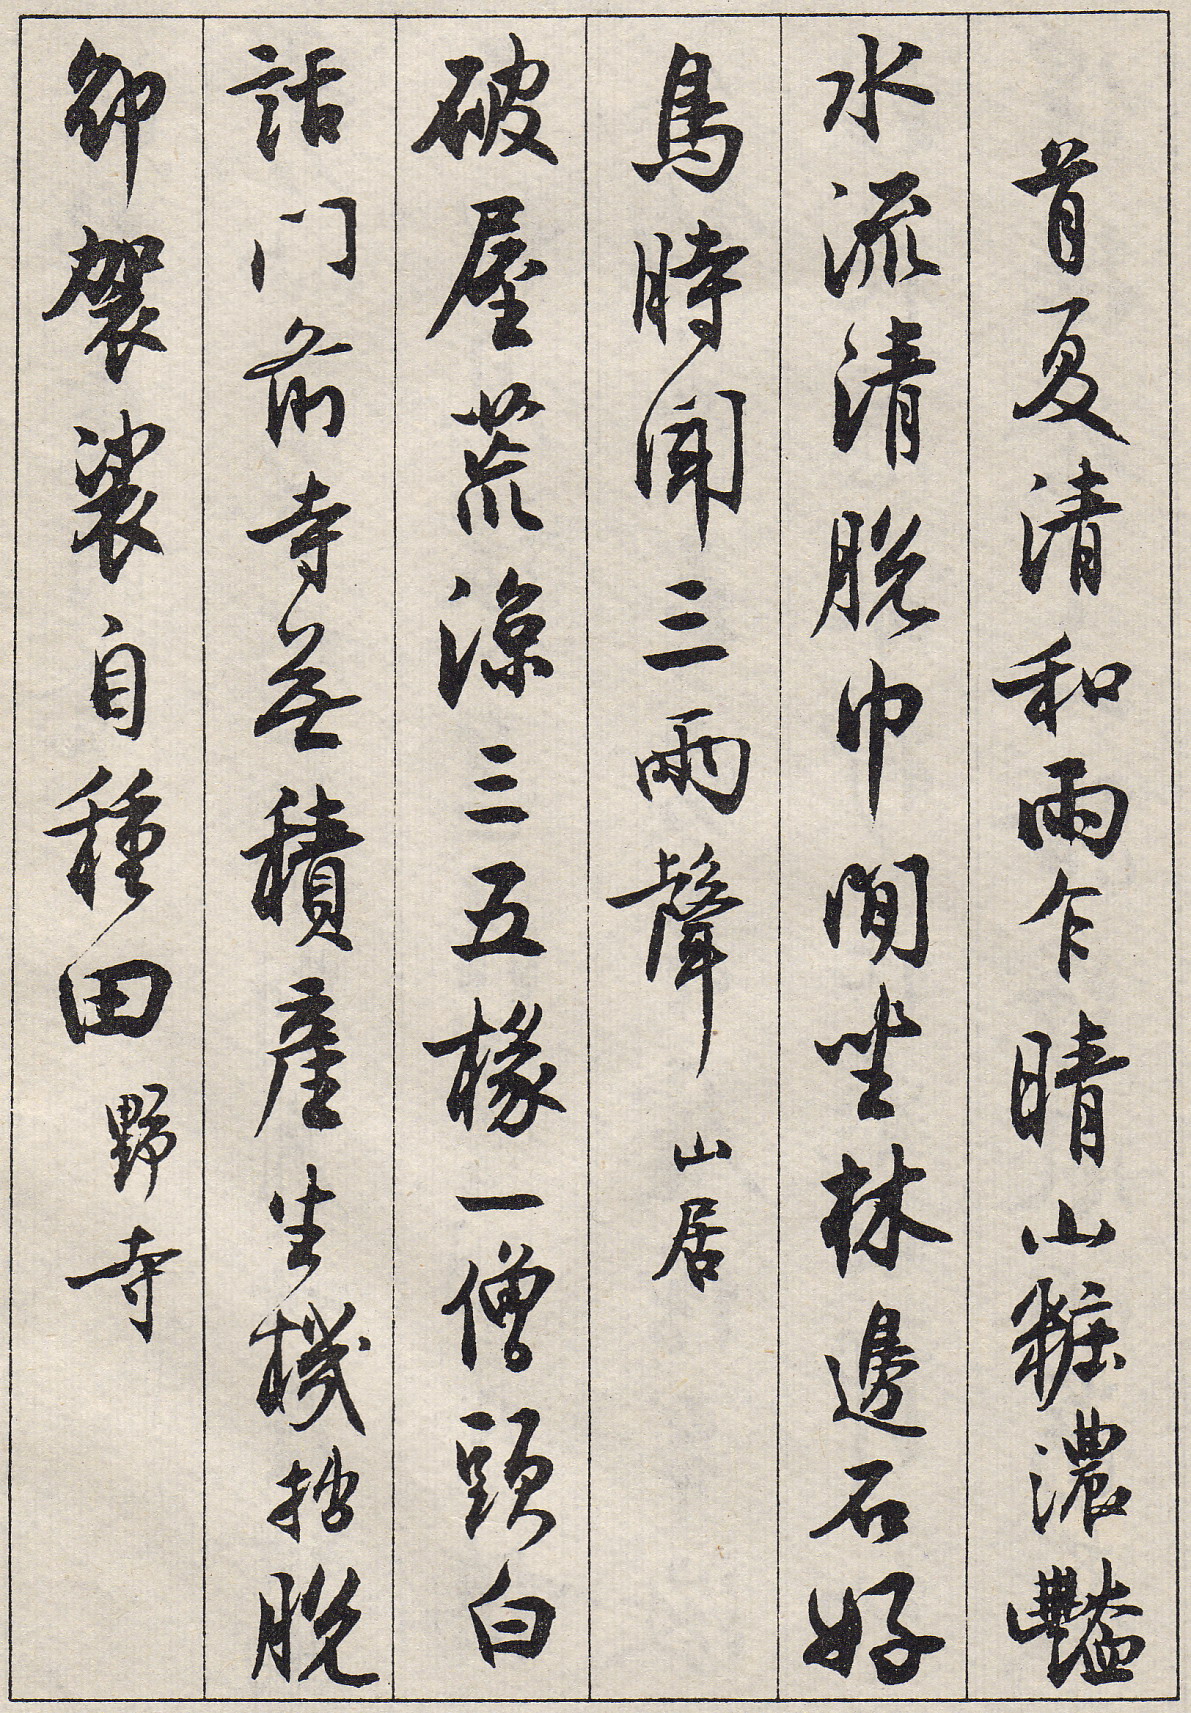 首夏清和雨乍晴山粧濃豔
水流清脫巾閒坐林邊石好
鳥時聞三兩聲 山居
破屋荒涼三五椽一僧頭白
話门前寺無積產生機拙脫
卻袈裟自種田 野寺